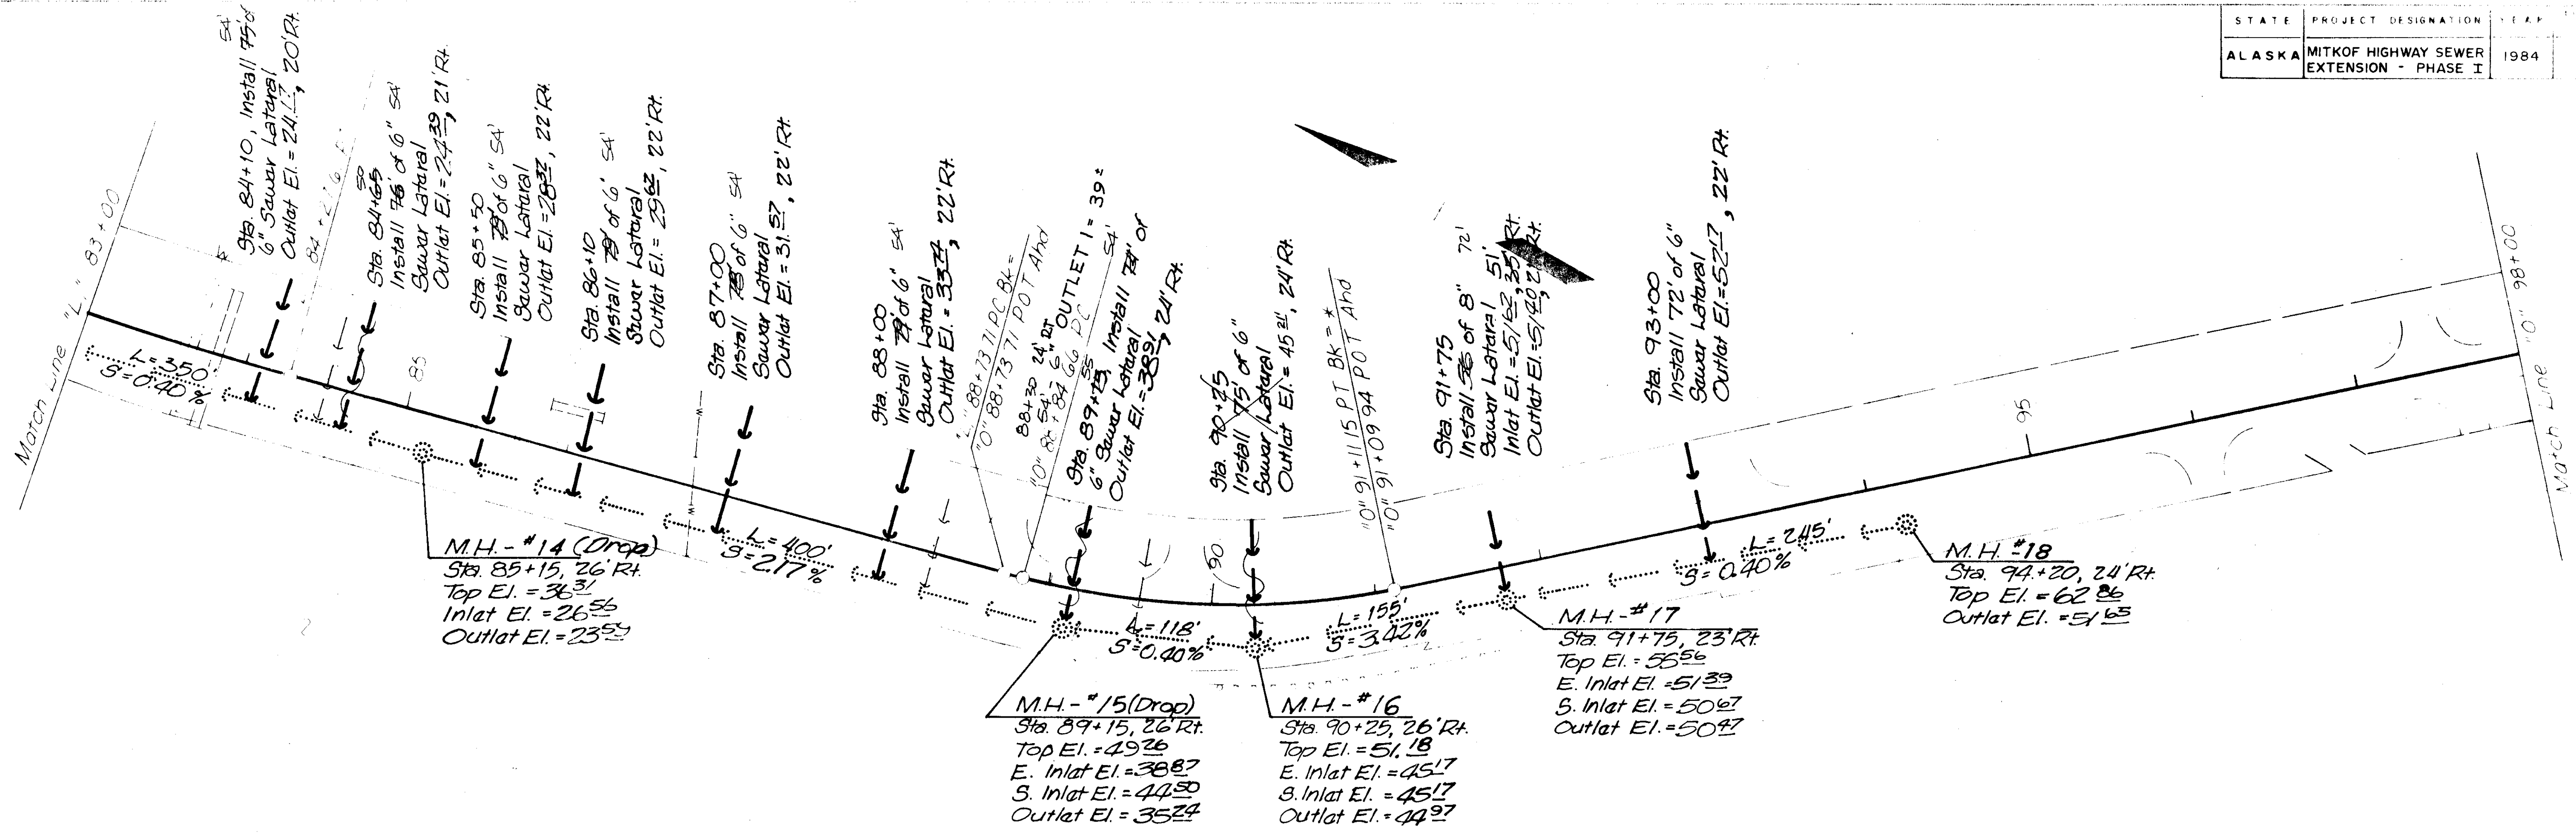 STATE PROJECT DESIGNATION YEAR
ALASKA MITKOF HIGHWAY SEWER EXTENSION - PHASE I 1984
Match Line "L" 83+00
54'
Sta. 84+10, Install 75' of
6" Sewer Lateral
Outlet El. = 24.17, 20' Rt.
50
Sta. 84+65
Install 76' of 6" 54'
Sewer Lateral
Outlet El. = 24.39, 21' Rt.
85
Sta. 85+50
Install of 6" 54'
Sewer Lateral
Outlet El. = 28.32, 22' Rt.
Sta. 86+10
Install of 6" 54'
Sewer Lateral
Outlet El. = 29.62, 22' Rt.
Sta. 87+00
Install of 6" 54'
Sewer Lateral
Outlet El. = 31.57, 22' Rt.
Sta. 88+00
Install of 6" 54'
Sewer Lateral
Outlet El. = 33.74, 22' Rt.
"L" 88+73 71 PC Bk =
"O" 88+73 71 POT Ahd
88+30 24' RT
54' 6"
OUTLET I = 39±
"O" 84 66 PC
54'
55
Sta. 89+15, Install of
6" Sewer Lateral
Outlet El. = 38.91, 24' Rt.
Sta. 90+25
Install 75' of 6"
Sewer Lateral
Outlet El. = 45.31, 24' Rt.
90
"O" 91+11 15 PT Bk = *
"O" 91+09 94 POT Ahd
Sta. 91+75
Install 56' of 8" 72'
Sewer Lateral 51'
Inlet El. = 51.62, 35' Rt.
Outlet El. = 51.40, 21' Rt.
Sta. 93+00
Install 72' of 6"
Sewer Lateral
Outlet El. = 52.17, 22' Rt.
95
Match Line "O" 98+00
L = 350'
S = 0.40%
L = 400'
S = 2.17%
L = 118'
S = 0.40%
L = 155'
S = 3.42%
L = 245'
S = 0.40%
M.H. - #14 (Drop)
Sta. 85+15, 26' Rt.
Top El. = 36.31
Inlet El. = 26.56
Outlet El. = 23.59
M.H. - #15 (Drop)
Sta. 89+15, 26' Rt.
Top El. = 49.26
E. Inlet El. = 38.87
S. Inlet El. = 44.50
Outlet El. = 35.24
M.H. - #16
Sta. 90+25, 26' Rt.
Top El. = 51.18
E. Inlet El. = 45.17
S. Inlet El. = 45.17
Outlet El. = 44.97
M.H. - #17
Sta. 91+75, 23' Rt.
Top El. = 56.56
E. Inlet El. = 51.39
S. Inlet El. = 50.67
Outlet El. = 50.47
M.H. #18
Sta. 94+20, 24' Rt.
Top El. = 62.86
Outlet El. = 51.65